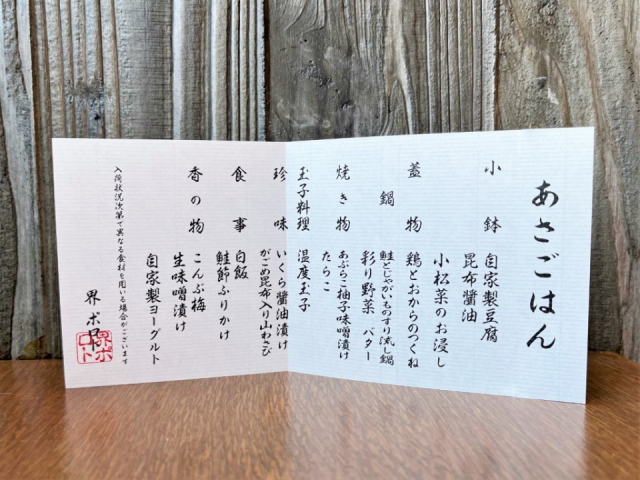 あさごはん
小鉢 自家製豆腐
昆布醤油
小松菜のお浸し
蓋物 鶏とおからのつくね
鍋 鮭とじゃがいものすり流し鍋
彩り野菜 バター
焼き物 あぶらこ柚子味噌漬け
たらこ
玉子料理 温度玉子
珍味 いくら醤油漬け
がごめ昆布入り山わさび
食事 白飯
鮭節ふりかけ
香の物 こんぶ梅
生味噌漬け
自家製ヨーグルト
入荷状況次第で異なる食材を用いる場合がございます
界 ポロト
界ポロト